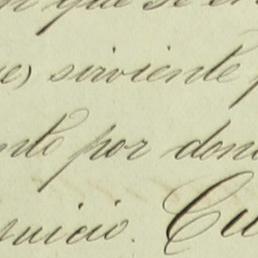 que se en
e) sirviente
nto por dond
juicio. Cu